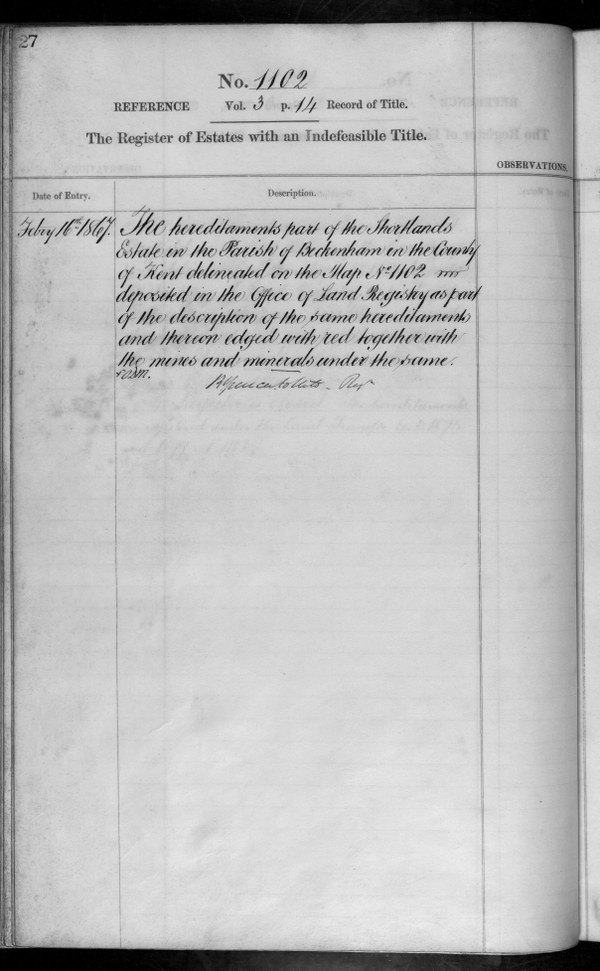 27
No. 1102
REFERENCE Vol. 3 p. 14 Record of Title.
The Register of Estates with an Indefeasible Title.
OBSERVATIONS.
Date of Entry. Description.
Febry 16th 1867. The hereditaments part of the Shortlands
Estate in the Parish of Beckenham in the County
of Kent delineated on the Map No. 1102
deposited in the Office of Land Registry as part
of the description of the same hereditaments
and thereon edged with red together with
the mines and minerals under the same.